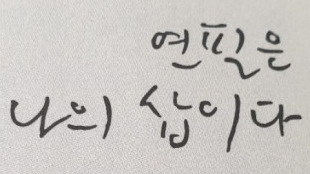 연필은
나의 삶이다